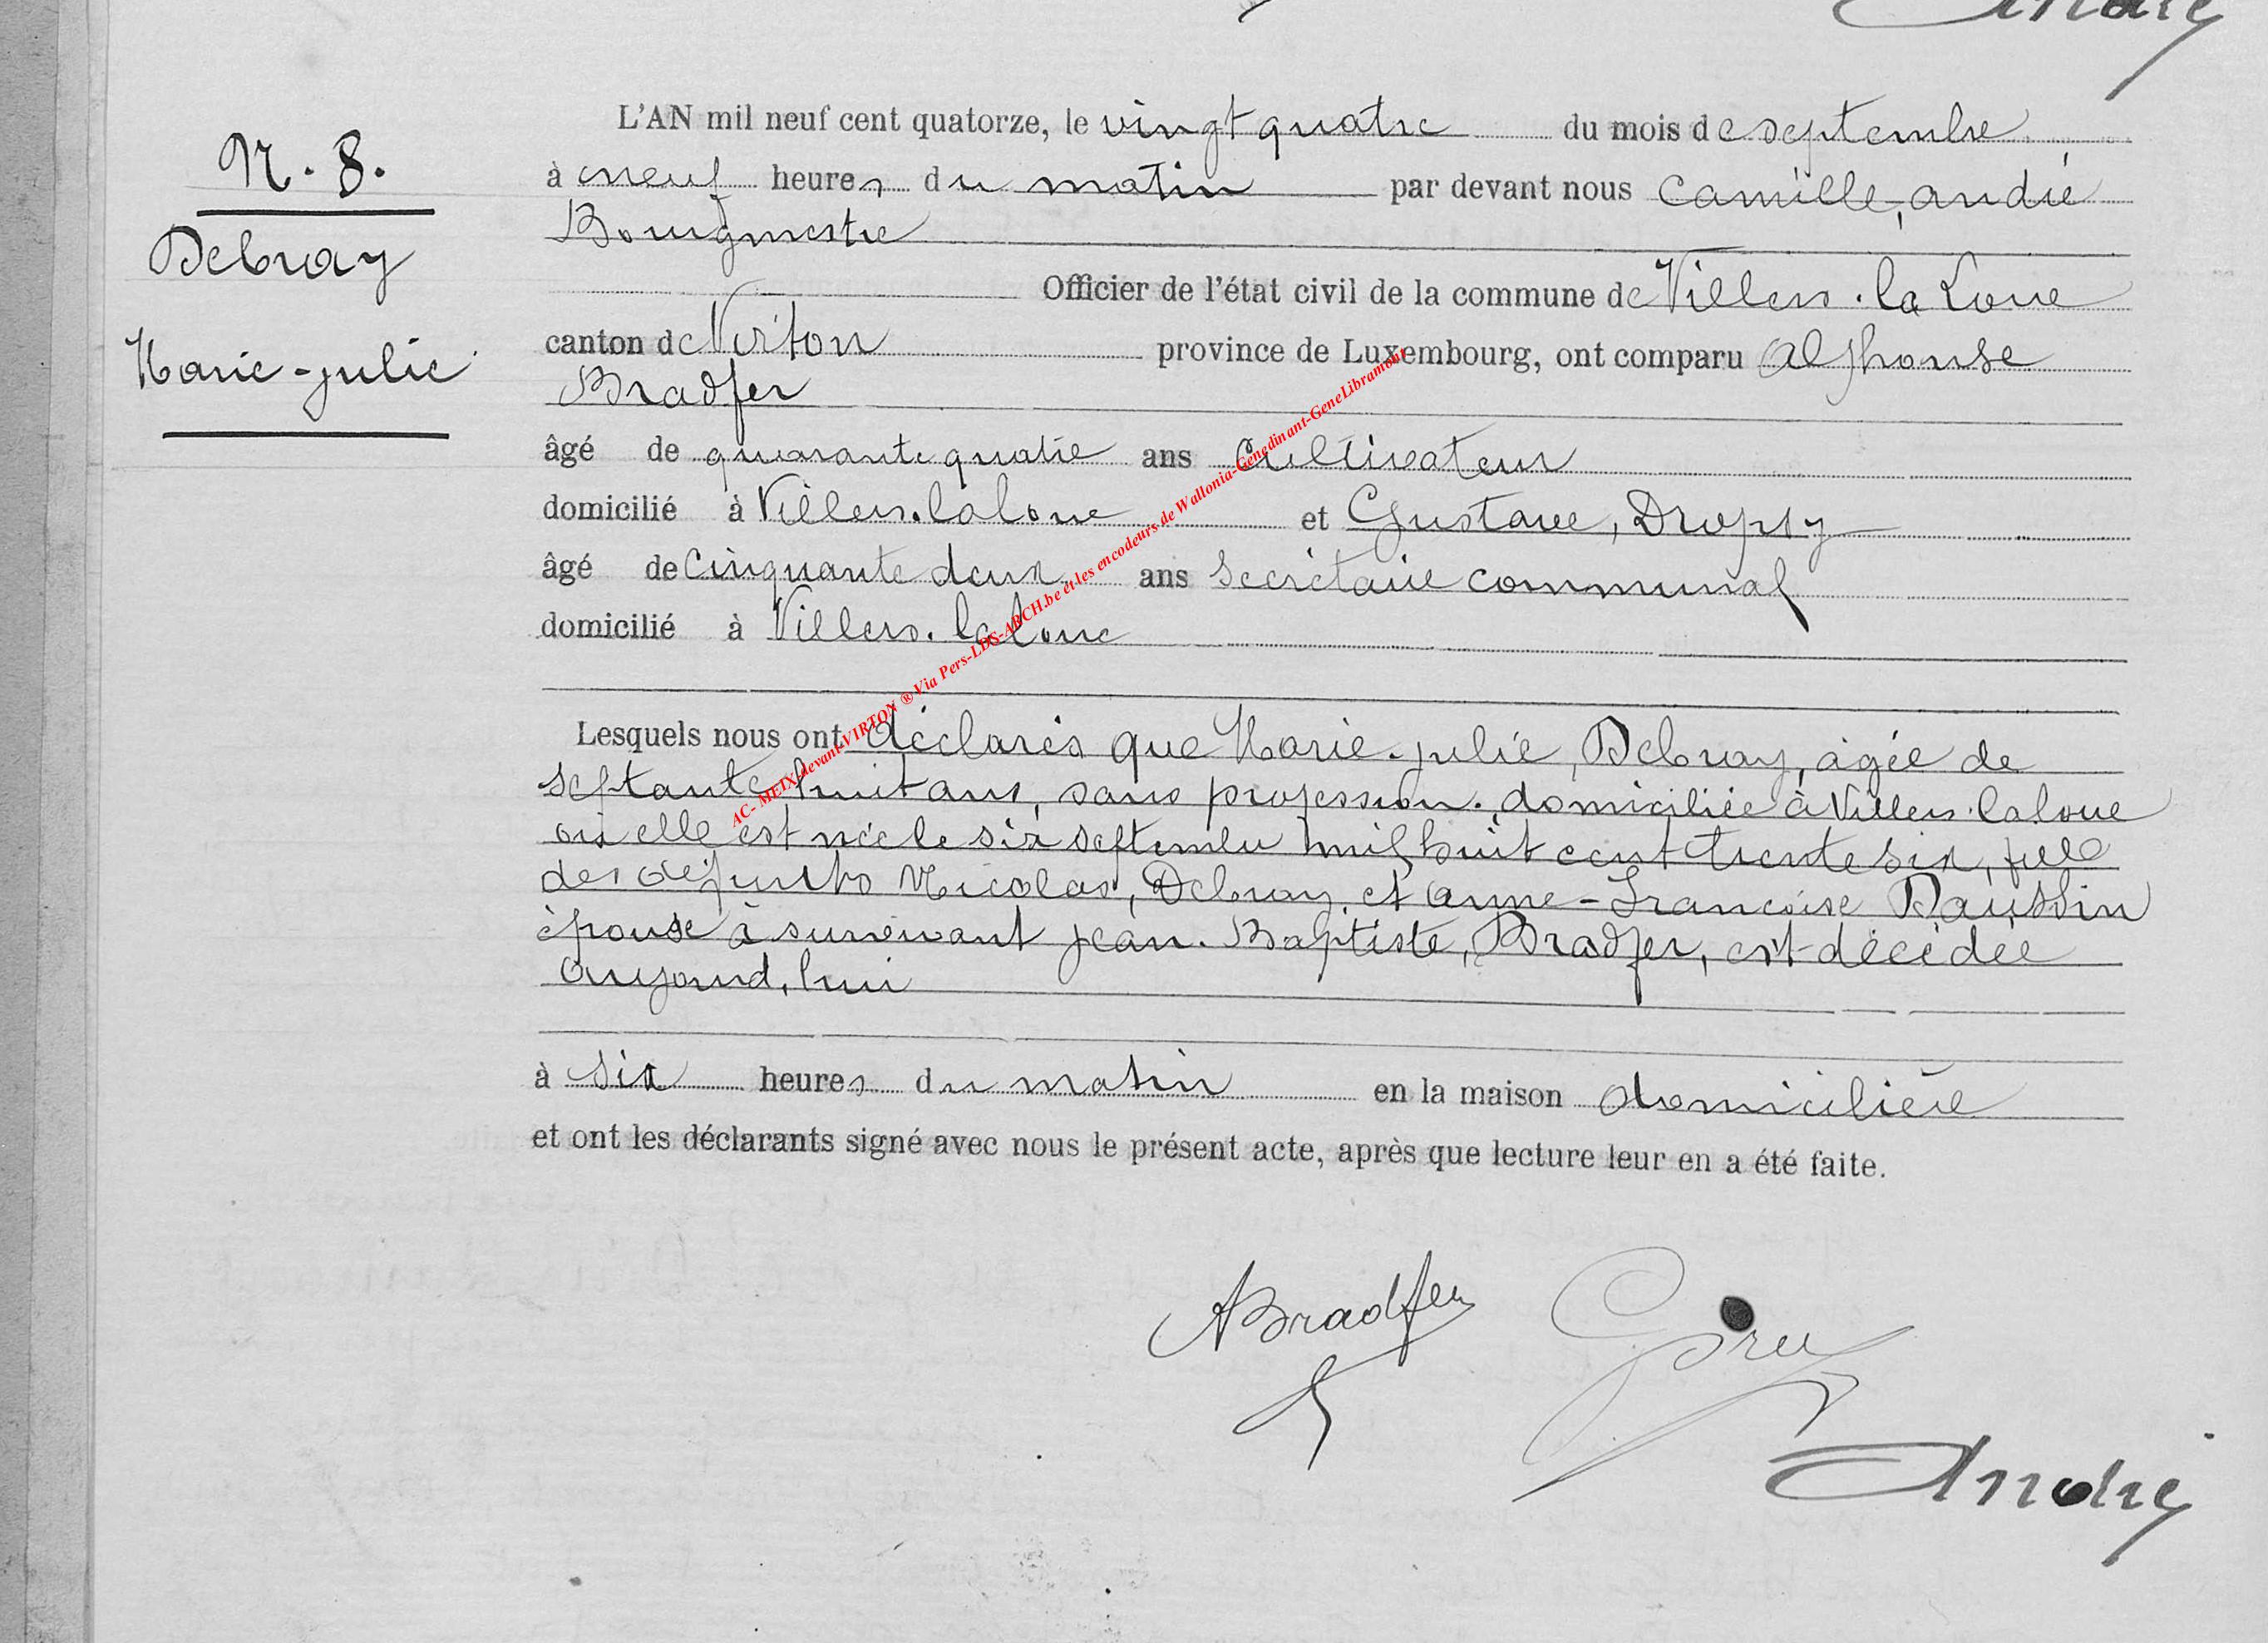 André
L'AN mil neuf cent quatorze, le vingt quatre du mois de septembre
N. 8.
à neuf heures du matin par devant nous Camille, andré
Bourgmestre
Debray
Officier de l'état civil de la commune de Villers.la Loue
Marie-julie
canton de Virton province de Luxembourg, ont comparu Alphonse
Bradfer
âgé de quarante quatre ans Cultivateur
domicilié à Villers.laloue et Gustave, Dropsy
âgé de Cinquante deux ans Secrétaire communal
domicilié à Villers.laloue
Lesquels nous ont déclarés que Marie-julie, Debray, agée de
septante huit ans, sans profession. domiciliée à Villers.laloue
où elle est née le six septembre mil huit cent trente six, fille
des défunts Nicolas, Debray et Anne-Francoise
épouse à survivant jean.Baptiste, Bradfer, est décédée
aujourd,hui
à six heures du matin en la maison domicilière
et ont les déclarants signé avec nous le présent acte, après que lecture leur en a été faite.
ABradfer
André
AC- MEIX-devant-VIRTON ® Via Pers-LDS-ARCH.be et les encodeurs de Wallonia-Genedinant-GeneLibramont